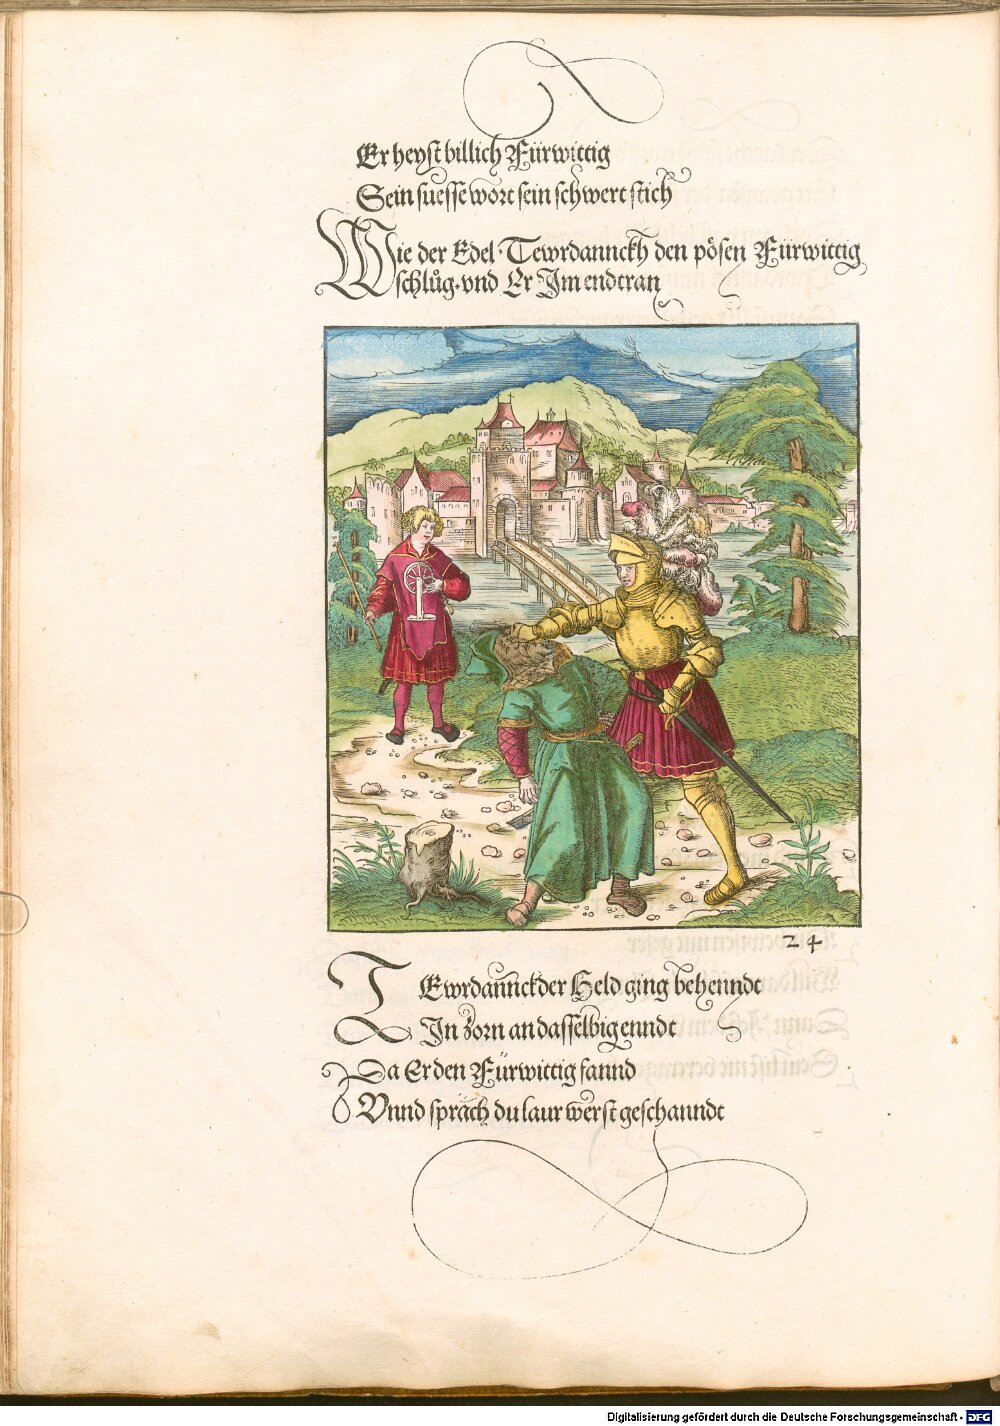 Er heyst billich Fürwittig
Sein suesse wort sein schwert stich
Wie der Edel Tewrdannckh den pösen Fürwittig
schlůg. vnd Er Im endtran
24
TEwrdannck der Held ging behenndt
In zorn an dasselbig enndt
Da Er den Fürwittig fannd
Vnnd sprach du laur werst geschanndt
Digitalisierung gefördert durch die Deutsche Forschungsgemeinschaft - DFG